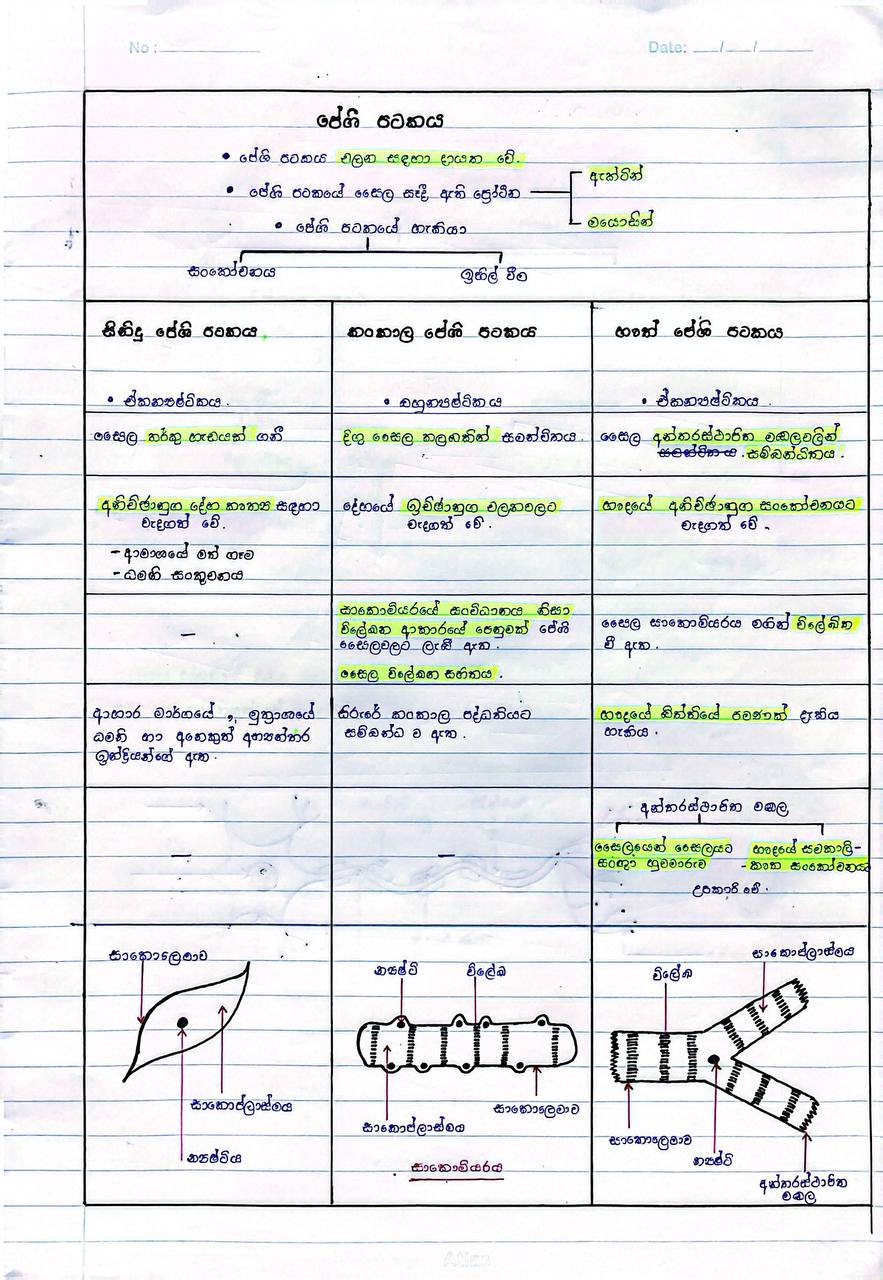 No :
Date: __/__/____
පේශි පටකය
• පේශි පටකය චලන සඳහා දායක වේ.
• පේශි පටකයේ සෛල සෑදී ඇති ප්‍රෝටීන
ඇක්ටින්
මයොසින්
• පේශි පටකයේ හැකියා
සංකෝචනය
ඉහිල් වීම
සිනිඳු පේශි පටකය
• ඒකන්‍යෂ්ටිකය.
සෛල තර්කු හැඩයක් ගනී
අනිච්ඡානුග දේහ කෘත්‍ය සඳහා
වැදගත් වේ.
- ආමාශයේ මත් ගෑම
- ධමනි සංකූචනය
–
ආහාර මාර්ගයේ, මුත්‍රාශයේ
ධමනි හා අනෙකුත් අභ්‍යන්තර
ඉන්ද්‍රියන්ගේ ඇත.
–
සාකොලෙමාව
සාකොප්ලාස්මය
න්‍යෂ්ටිය
කංකාල පේශි පටකය
• බහුන්‍යෂ්ටිකය
දිගු සෛල කලබකින් සමන්විතය.
දේහයේ ඉච්ඡානුග චලනවලට
වැදගත් වේ.
සාකොමියරයේ සංවිධානය නිසා
විලේඛන ආකාරයේ පෙනුමක් පේශි
සෛලවලට ලැබී ඇත.
සෛල විලේඛන සහිතය.
සිරුරේ කංකාල පද්ධතියට
සම්බන්ධ ව ඇත.
–
න්‍යෂ්ටි
විලේඛ
සාකොලෙමාව
සාකොප්ලාස්මය
සාකොමියරය
හෘත් පේශි පටකය
• ඒකන්‍යෂ්ටිකය.
සෛල අන්තරස්ථාපිත මඬලවලින්
සමන්විතය. සම්බන්ධිතය.
හෘදයේ අනිච්ඡානුග සංකෝචනයට
වැදගත් වේ.
සෛල සාකොමියරය මගින් විලේඛිත
වී ඇත.
හෘදයේ බිත්තියේ පමණක් දැකිය
හැකිය.
• අන්තරස්ථාපිත මඬල
සෛලයෙන් සෛලයට
සංඥා හුවමාරුව
හෘදයේ සමකාලි-
-කෘත සංකෝචනය
උපකාරී වේ.
සාකොප්ලාස්මය
විලේඛ
සාකොලෙමාව
න්‍යෂ්ටි
අන්තරස්ථාපිත
මඬල
Atlas